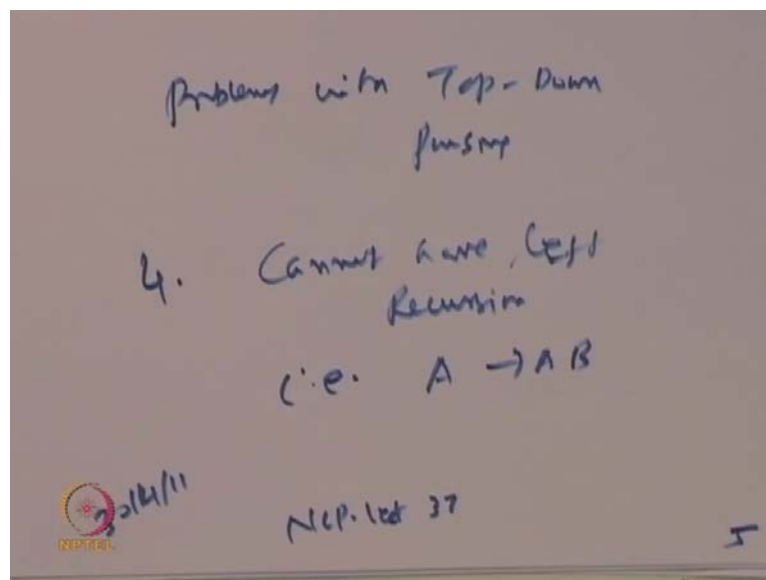 Problems with Top-Down
Parsing
4. Cannot have Left
Recursion
i.e. A → A B
NLP: lect 37
5
NPTEL